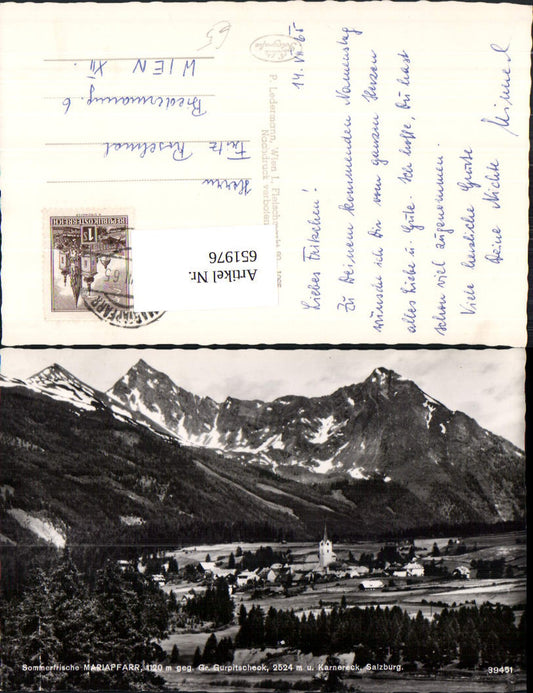 14. VII. 65
Liebes Fritzchen!
Zu Deinem kommenden Namenstag
wünsche ich Dir von ganzem Herzen
alles Liebe u. Gute. Ich hoffe, Du hast
schon viel zugenommen.
Viele herzliche Grüße
Deine Nichte
P. Ledermann, Wien I,
Nachdruck verboten
Herrn
Fritz
Biedermanng. 6
WIEN XII.
REPUBLIK ÖSTERREICH
1S
MARIAPFARR
Artikel Nr.
651976
Sommerfrische MARIAPFARR, 1120 m geg. Gr. Gurpitscheck, 2524 m u. Karnereck, Salzburg.
39451